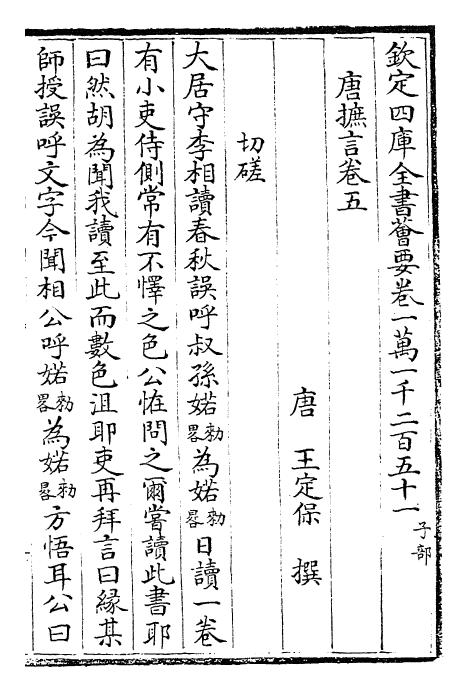 欽定四庫全書薈要卷一萬一千二百五十一 子部
唐摭言卷五
唐 王定保 撰
切磋
大居守李相讀春秋誤呼叔孫婼勑畧為婼勑晷日讀一卷
有小吏侍側常有不懌之色公恠問之爾嘗讀此書耶
曰然胡為聞我讀至此而數色沮耶吏再拜言曰緣某
師授誤呼文字今聞相公呼婼勑畧為婼勑晷方悟耳公曰